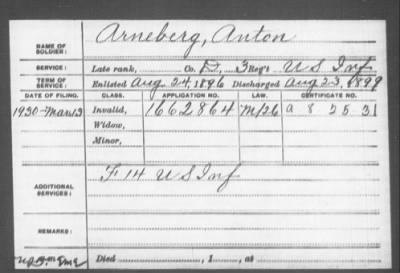 NAME OF SOLDIER: Arneberg, Anton
SERVICE: Late rank, Co. D, 3 Reg't U S Inf
TERM OF SERVICE: Enlisted Aug. 24, 1896 Discharged Aug 23, 1899
DATE OF FILING. CLASS. APPLICATION NO. LAW. CERTIFICATE NO.
1930-Mar 13 Invalid, 1662864 a 8 2 5 31
Widow,
Minor,
ADDITIONAL SERVICES: F 14 U S Inf
REMARKS:
Died , 1 , at